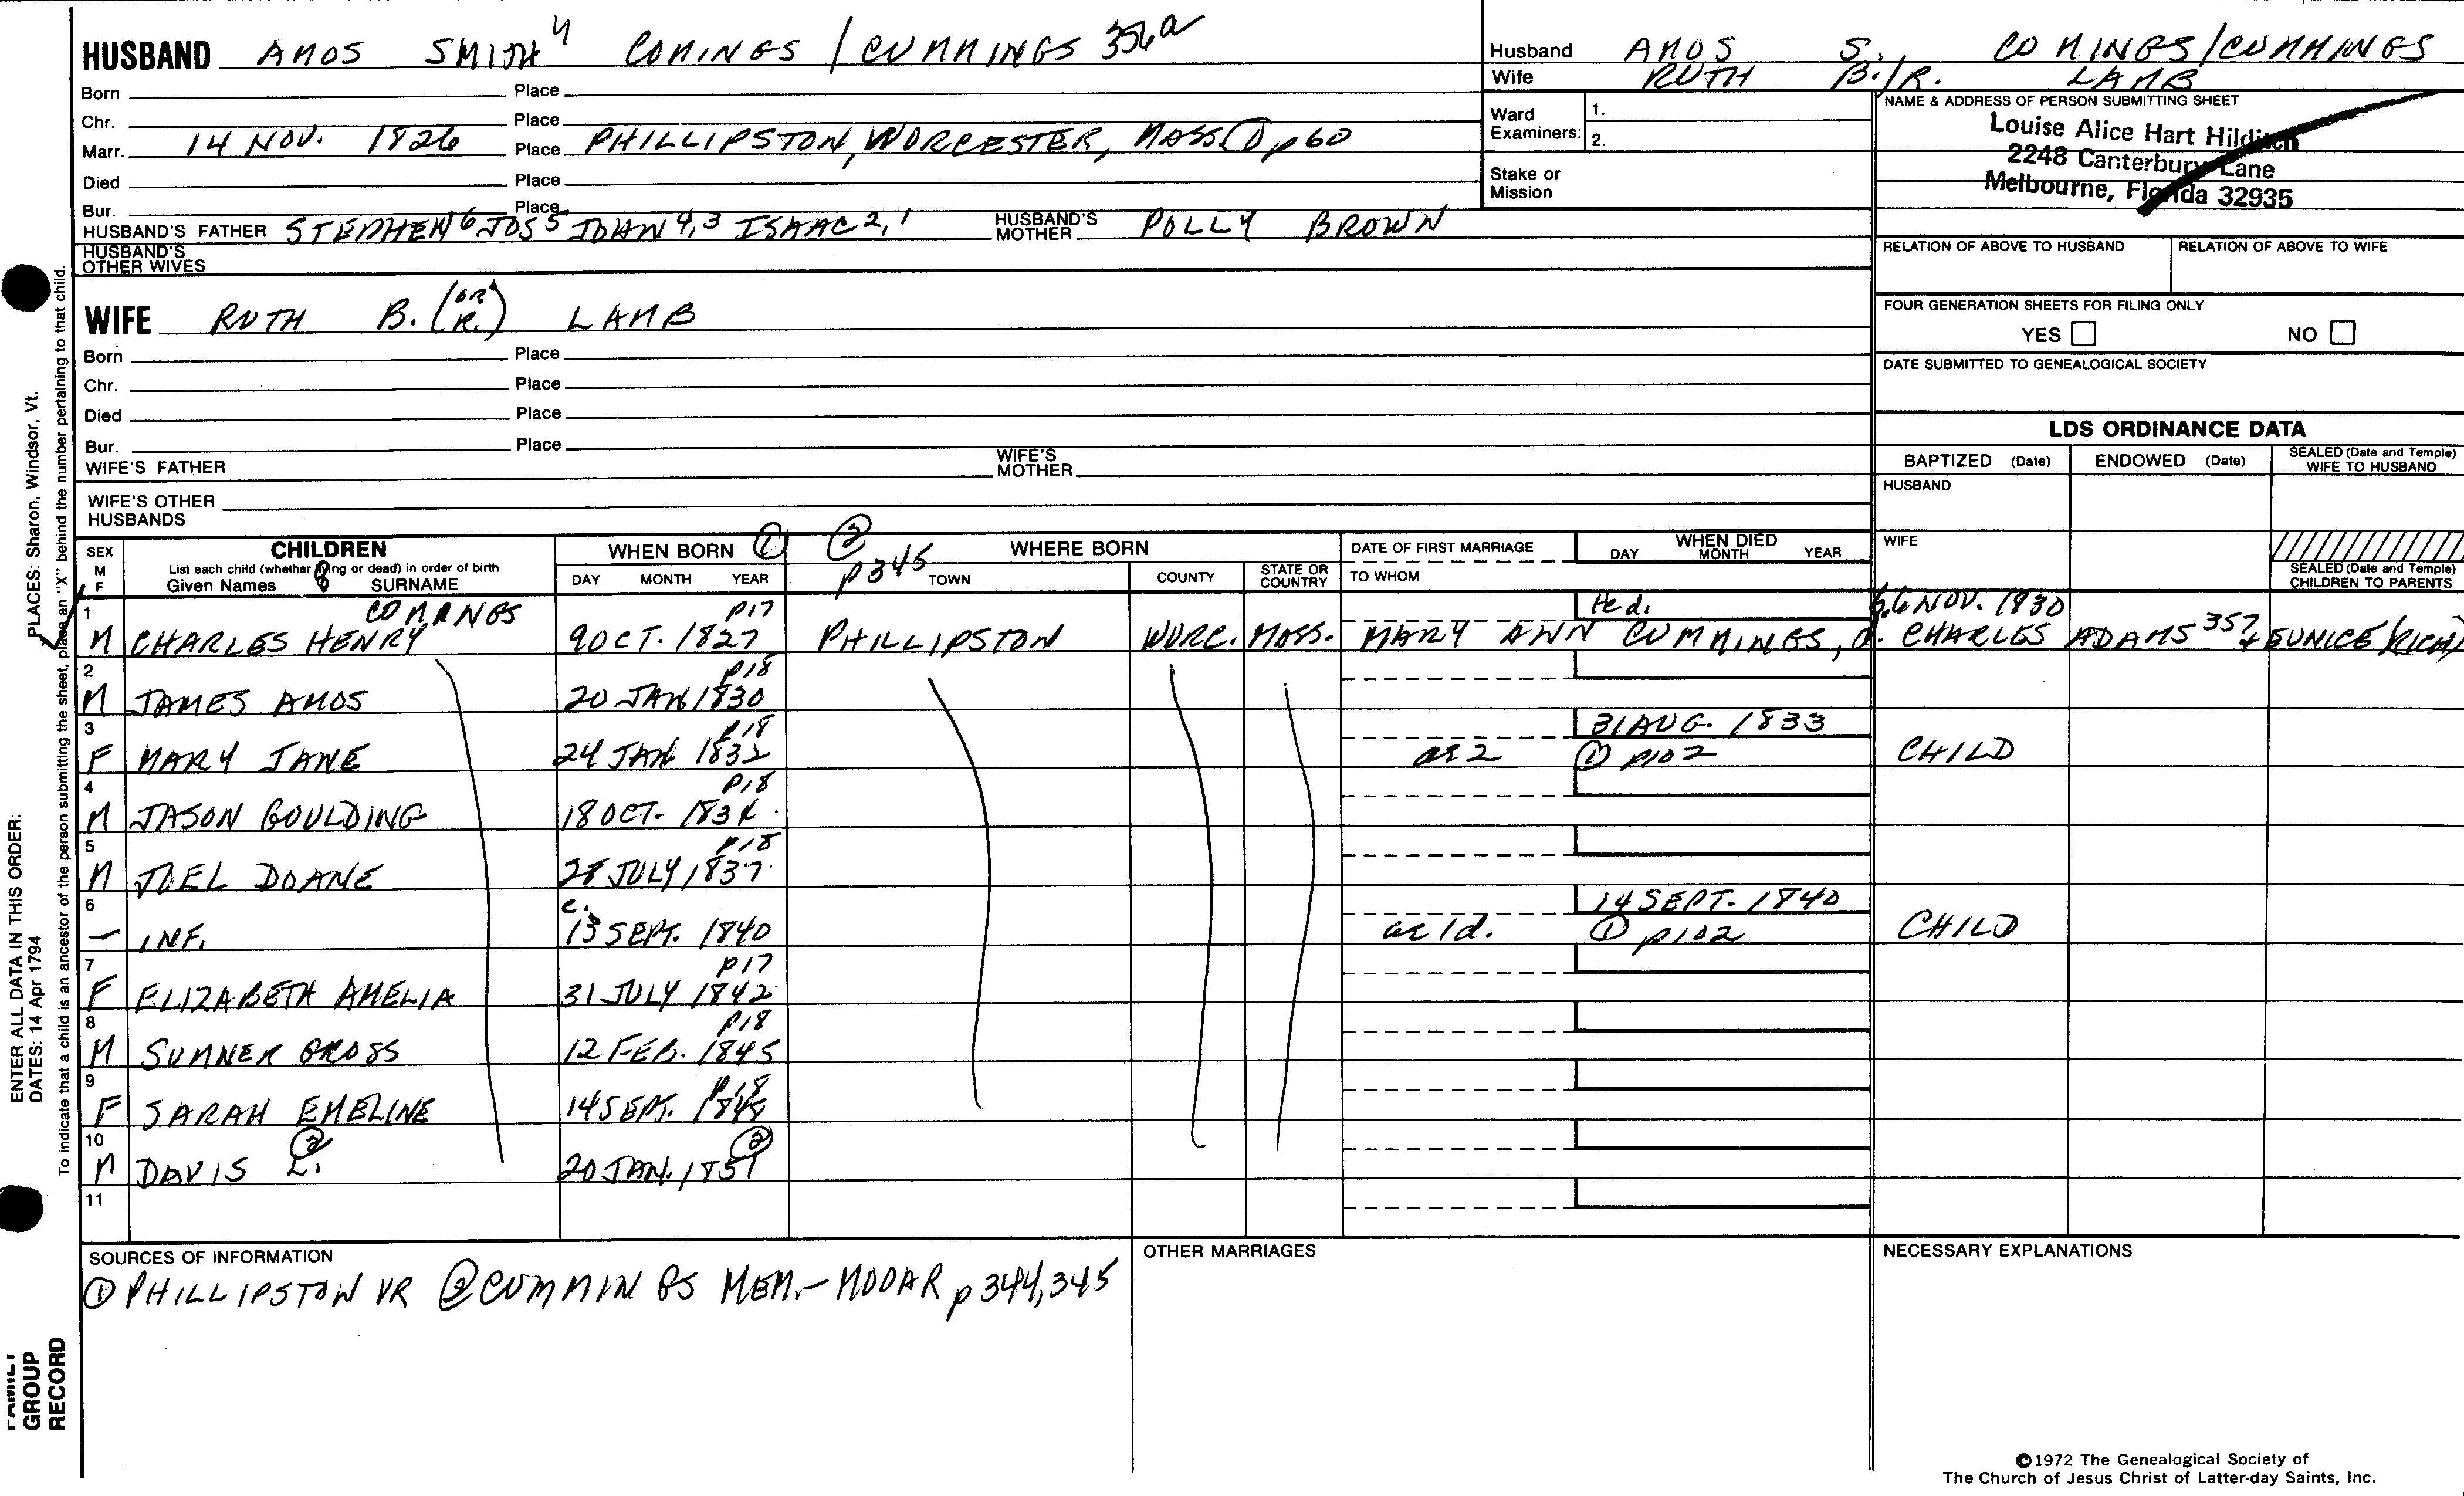 HUSBAND AMOS SMITH 4 COMINGS / CUMMINGS 356a
Born Place
Chr. Place
Marr. 14 NOV. 1826 Place PHILLIPSTON, WORCESTER, MASS ① p60
Died Place
Bur. Place
HUSBAND'S FATHER STEPHEN 6 JOS 5 JOHN 4,3 ISAAC 2,1 HUSBAND'S MOTHER POLLY BROWN
HUSBAND'S OTHER WIVES
Husband AMOS S. COMINGS/CUMMINGS
Wife RUTH B./R. LAMB
Ward Examiners: 1.
2.
Stake or Mission
NAME & ADDRESS OF PERSON SUBMITTING SHEET
Louise Alice Hart Hilditch
2248 Canterbury Lane
Melbourne, Florida 32935
RELATION OF ABOVE TO HUSBAND RELATION OF ABOVE TO WIFE
FOUR GENERATION SHEETS FOR FILING ONLY
YES NO
DATE SUBMITTED TO GENEALOGICAL SOCIETY
WIFE RUTH B. (OR R.) LAMB
Born Place
Chr. Place
Died Place
Bur. Place
WIFE'S FATHER WIFE'S MOTHER
WIFE'S OTHER HUSBANDS
LDS ORDINANCE DATA
BAPTIZED (Date) ENDOWED (Date) SEALED (Date and Temple) WIFE TO HUSBAND
HUSBAND
WIFE
SEALED (Date and Temple) CHILDREN TO PARENTS
SEX M F
CHILDREN
List each child (whether living or dead) in order of birth
Given Names SURNAME
WHEN BORN ①
DAY MONTH YEAR
② p345 WHERE BORN
TOWN COUNTY STATE OR COUNTRY
DATE OF FIRST MARRIAGE
TO WHOM
WHEN DIED
DAY MONTH YEAR
1 COMINGS p17 b. 6 NOV. 1830
M CHARLES HENRY 9 OCT. 1827 PHILLIPSTON WORC. MASS. MARY ANN CUMMINGS, d. CHARLES ADAMS 357 + EUNICE (RICH)
2 p18
M JAMES AMOS 20 JAN 1830
3 p18 31 AUG. 1833
F MARY JANE 24 JAN 1832 ae 2 ① p102 CHILD
4 p18
M JASON GOULDING 18 OCT. 1834
5 p18
M JOEL DOANE 28 JULY 1837
6 c. 14 SEPT. 1840
— INF. 13 SEPT. 1840 ae 1d. ① p102 CHILD
7 p17
F ELIZABETH AMELIA 31 JULY 1842
8 p18
M SUMNER GROSS 12 FEB. 1845
9 p18
F SARAH EMELINE 14 SEPT. 1848
10 ② ②
M DAVIS L. 20 JAN. 1851
11
SOURCES OF INFORMATION
① PHILLIPSTON VR ② CUMMINGS MEM.-MOOAR p344,345
OTHER MARRIAGES
NECESSARY EXPLANATIONS
©1972 The Genealogical Society of
The Church of Jesus Christ of Latter-day Saints, Inc.
To indicate that a child is an ancestor of the person submitting the sheet, place an "X" behind the number pertaining to that child.
ENTER ALL DATA IN THIS ORDER: PLACES: Sharon, Windsor, Vt.
DATES: 14 Apr 1794
FAMILY
GROUP
RECORD